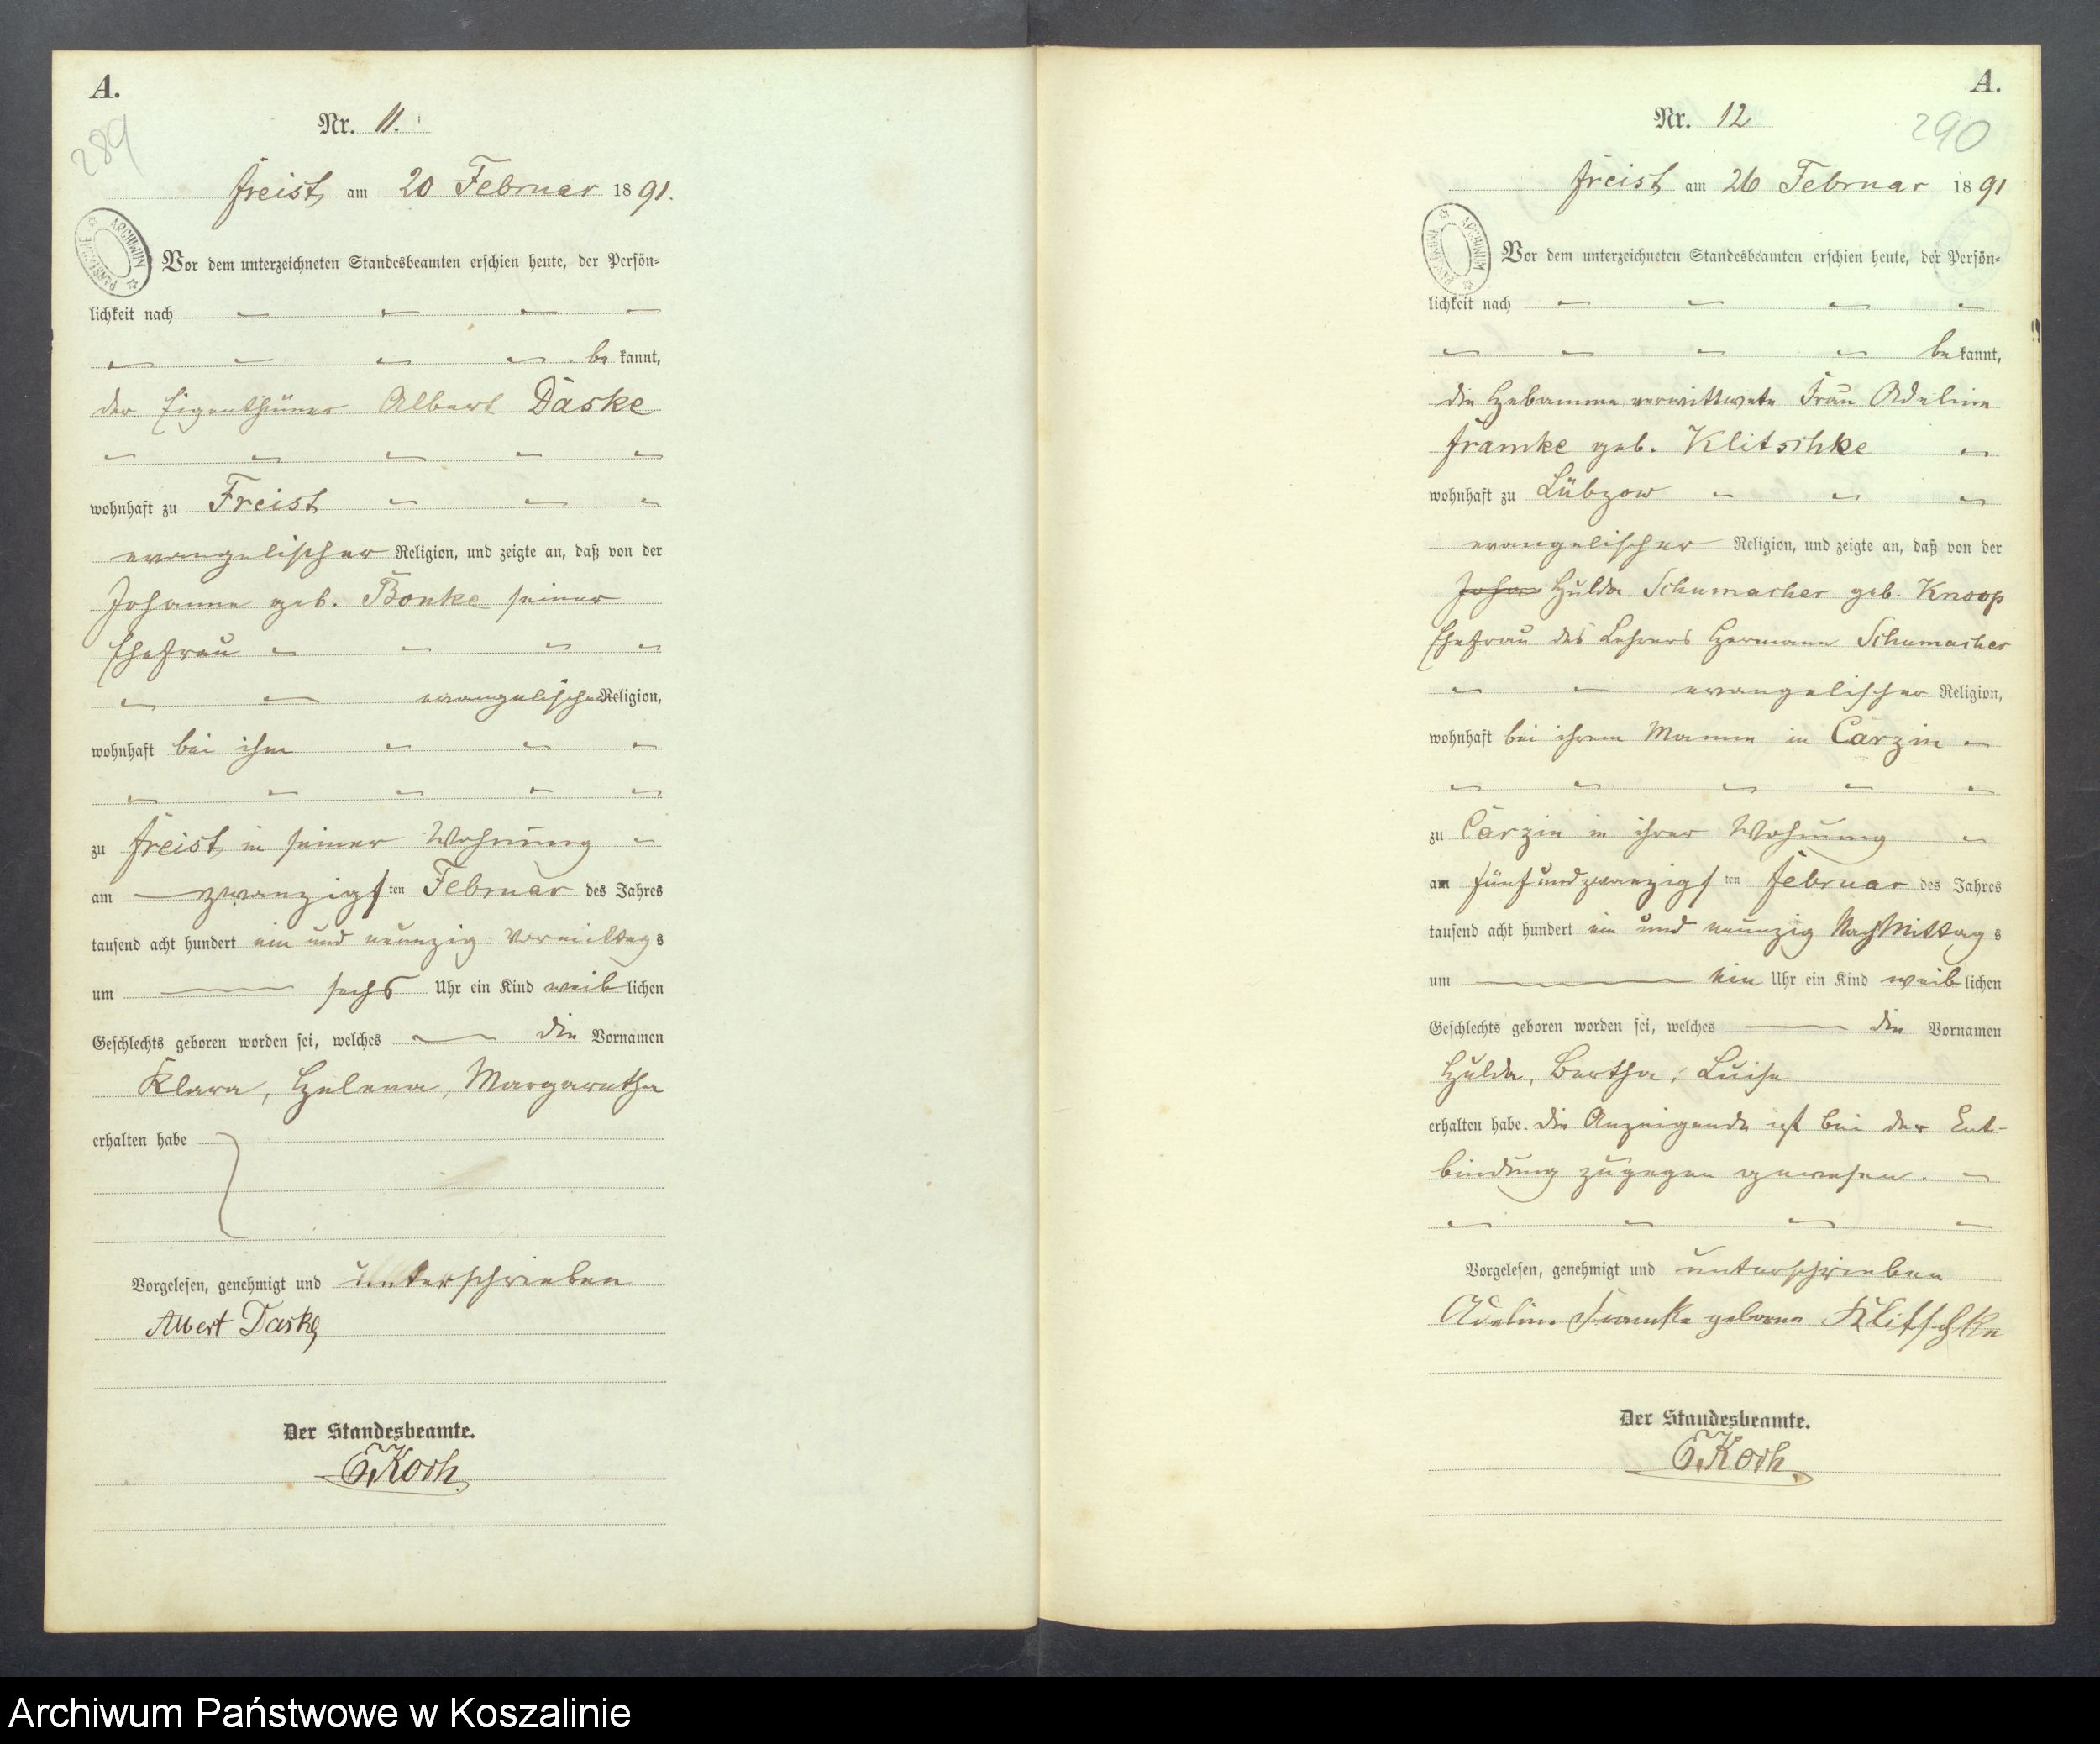 A.
289
Nr. 11.
Freist, am 20 Februar 1891.
ARCHIWUM PAŃSTWOWE
Vor dem unterzeichneten Standesbeamten erschien heute, der Persön=
lichkeit nach
be kannt,
der Eigenthümer Albert Daske
wohnhaft zu Freist
evangelischer Religion, und zeigte an, daß von der
Johanne geb. Bonke seiner
Ehefrau
evangelischer Religion,
wohnhaft bei ihm
zu Freist, in seiner Wohnung
am zwanzigsten Februar des Jahres
tausend acht hundert ein und neunzig Vormittags
um sechs Uhr ein Kind weiblichen
Geschlechts geboren worden sei, welches die Vornamen
Klara, Helena, Margaretha
erhalten habe
Vorgelesen, genehmigt und unterschrieben
Albert Daske
Der Standesbeamte.
E. Koch.
A.
290
Nr. 12
Freist am 26 Februar 1891
ARCHIWUM PAŃSTWOWE
Vor dem unterzeichneten Standesbeamten erschien heute, der Persön=
lichkeit nach
be kannt,
die Hebamme verwittwete Frau Adeline
Framke geb. Klitschke
wohnhaft zu Lübzow
evangelischer Religion, und zeigte an, daß von der
Johan Hulda Schumacher geb. Knoop
Ehefrau des Lehrers Hermann Schumacher
evangelischer Religion,
wohnhaft bei ihrem Manne in Carzin
zu Carzin in ihrer Wohnung
am fünfundzwanzigsten Februar des Jahres
tausend acht hundert ein und neunzig Nachmittags
um ein Uhr ein Kind weiblichen
Geschlechts geboren worden sei, welches die Vornamen
Hulda, Bertha, Luise
erhalten habe. Die Anzeigende ist bei der Ent-
bindung zugegen gewesen.
Vorgelesen, genehmigt und unterschrieben
Adeline Framke geborne Klitschke
Der Standesbeamte.
E. Koch.
Archiwum Państwowe w Koszalinie